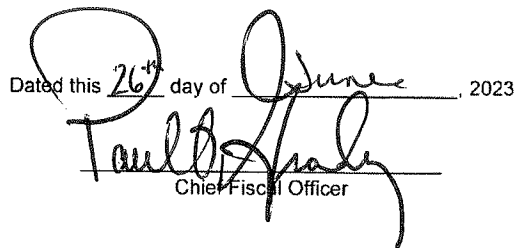 Dated this 26th day of June, 2023
Paul
Chief Fiscal Officer